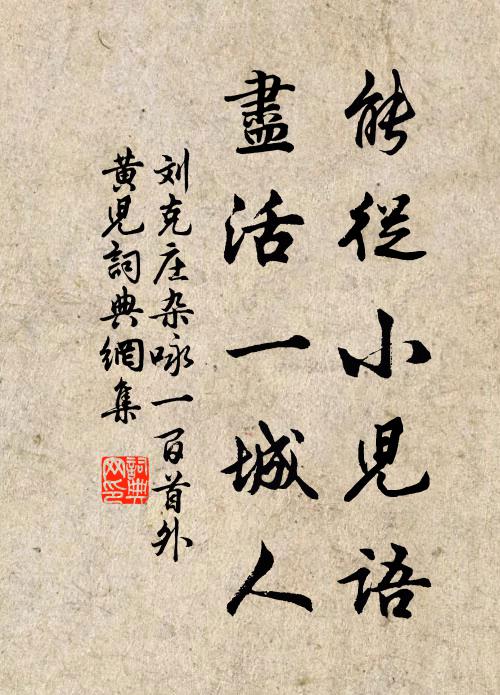 能從小兒語
盡活一城人
刘克庄杂咏一百首外
黄児詞典網集
詞典
网印